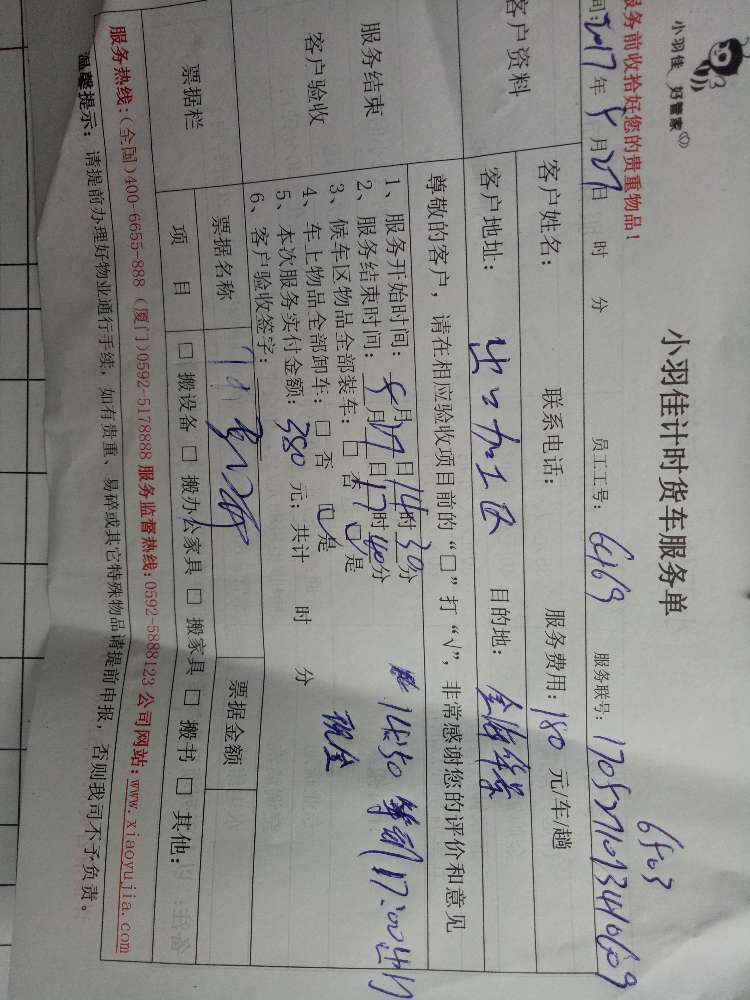 小羽佳 好管家
服务前收拾好您的贵重物品！
小羽佳计时货车服务单
间:2017年8月27日 时 分 员工工号: 6469 服务联号:
6503
客户资料
客户姓名: 联系电话: 服务费用:180 元/车/趟
客户地址: 出口加工区 目的地:
尊敬的客户，请在相应验收项目前的“□”打“√”，非常感谢您的评价和意见
服务结束
客户验收
1、服务开始时间: 8月27日14时30分
2、服务结束时间: 8月27日17时40分
3、候车区物品全部装车: □ 否 □ 是
4、车上物品全部卸车: □ 否 □ 是
5、本次服务实付金额: 380 元；共计 时 分
6、客户验收签字:
14:50 17:00
现金
票据栏
票据名称 票据金额
项 目 □ 搬设备 □ 搬办公家具 □ 搬家具 □ 搬书 □ 其他:
服务热线:(全国)400-6655-888 (厦门)0592-5178888 服务监督热线:0592-5888123 公司网站:www.xiaoyujia.com
温馨提示: 请提前办理好物业通行手续，如有贵重、易碎或其它特殊物品请提前申报，否则我司不予负责。